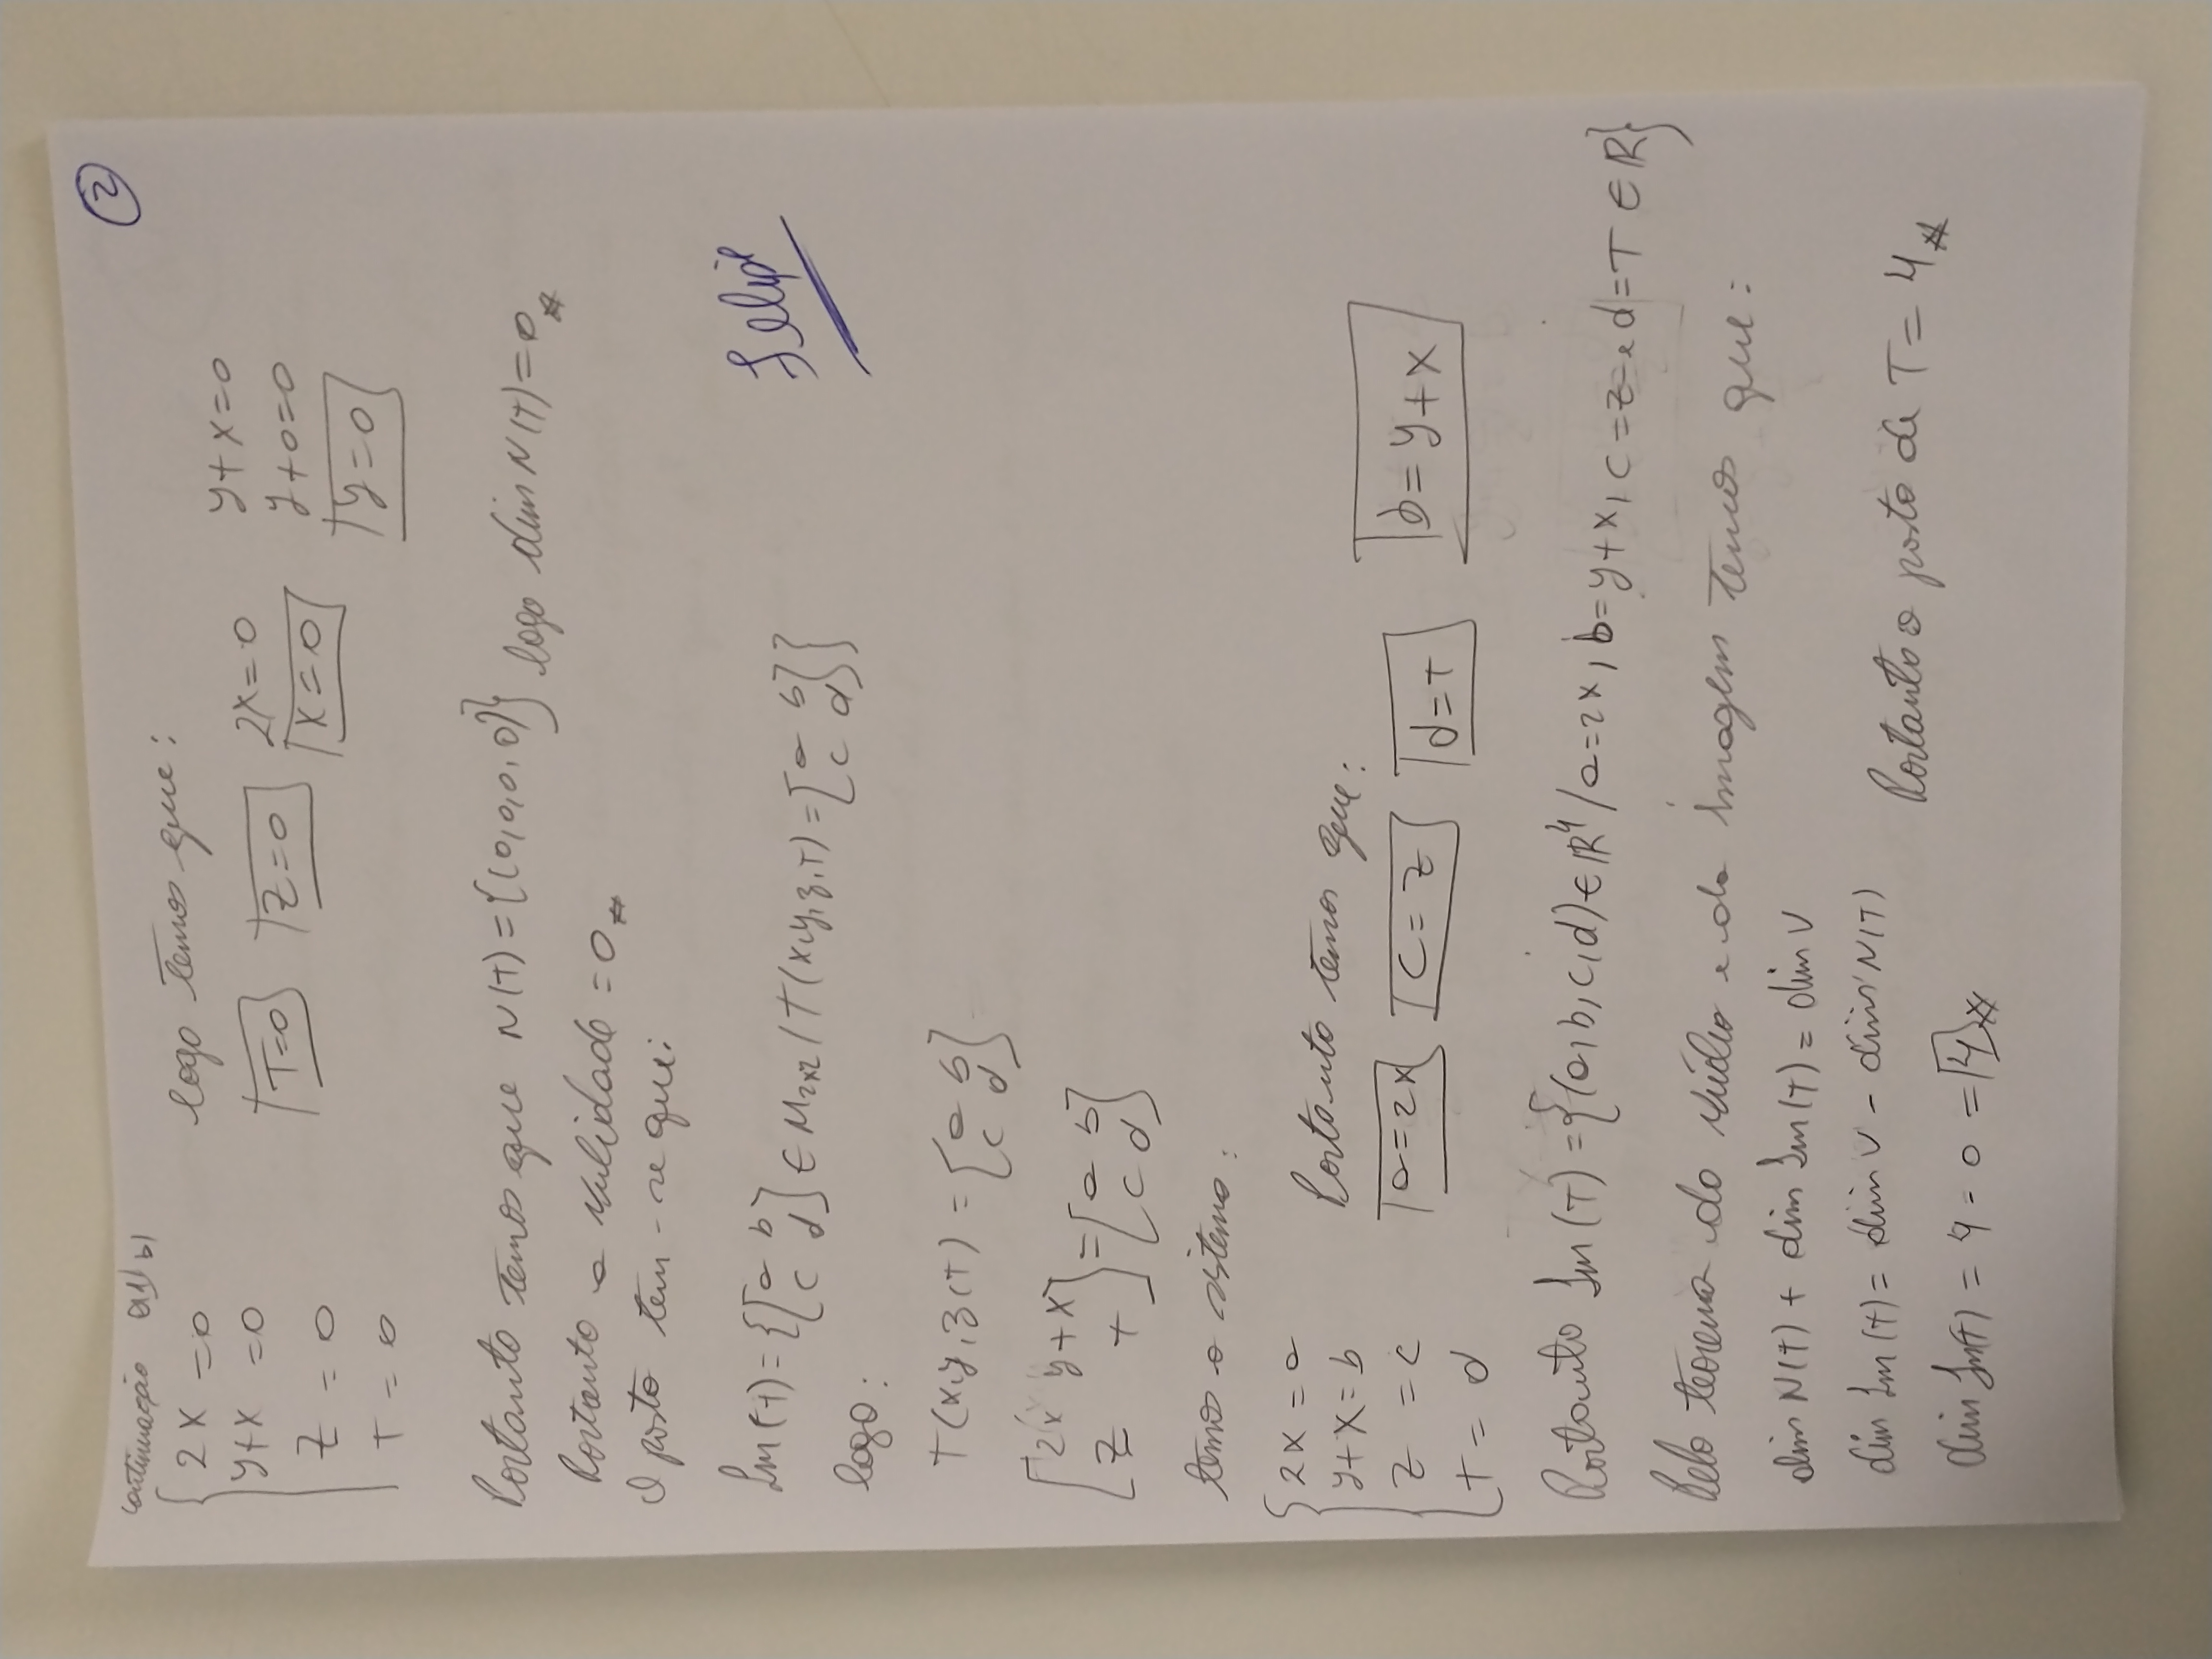 2
continuação Q1) b)
{ 2x = 0
y+x = 0
z = 0
T = 0
logo temos que:
T=0 z=0 2x=0 y+x=0
x=0 y+0=0
y=0
Portanto temos que N(T) = {(0,0,0,0)} logo dim N(T) = 0 #
Portanto a nulidade = 0 #
O posto tem-se que:
Im(T) = {[a b; c d] ∈ M2x2 / T(x,y,z,T) = [a b; c d]}
Felipe
logo:
T(x,y,z,T) = [a b; c d]
[2x y+x; z T] = [a b; c d]
temos o sistema:
{ 2x = a
y+x = b
z = c
T = d
Portanto temos que:
a=2x c=z d=T b=y+x
Portanto Im(T) = {(a,b,c,d) ∈ ℝ⁴ / a=2x, b=y+x, c=z e d=T ∈ ℝ}
Pelo teorema do núcleo e da imagem temos que:
dim N(T) + dim Im(T) = dim V
dim Im(T) = dim V - dim N(T)
dim Im(T) = 4 - 0 = 4 #
Portanto o posto de T = 4 #